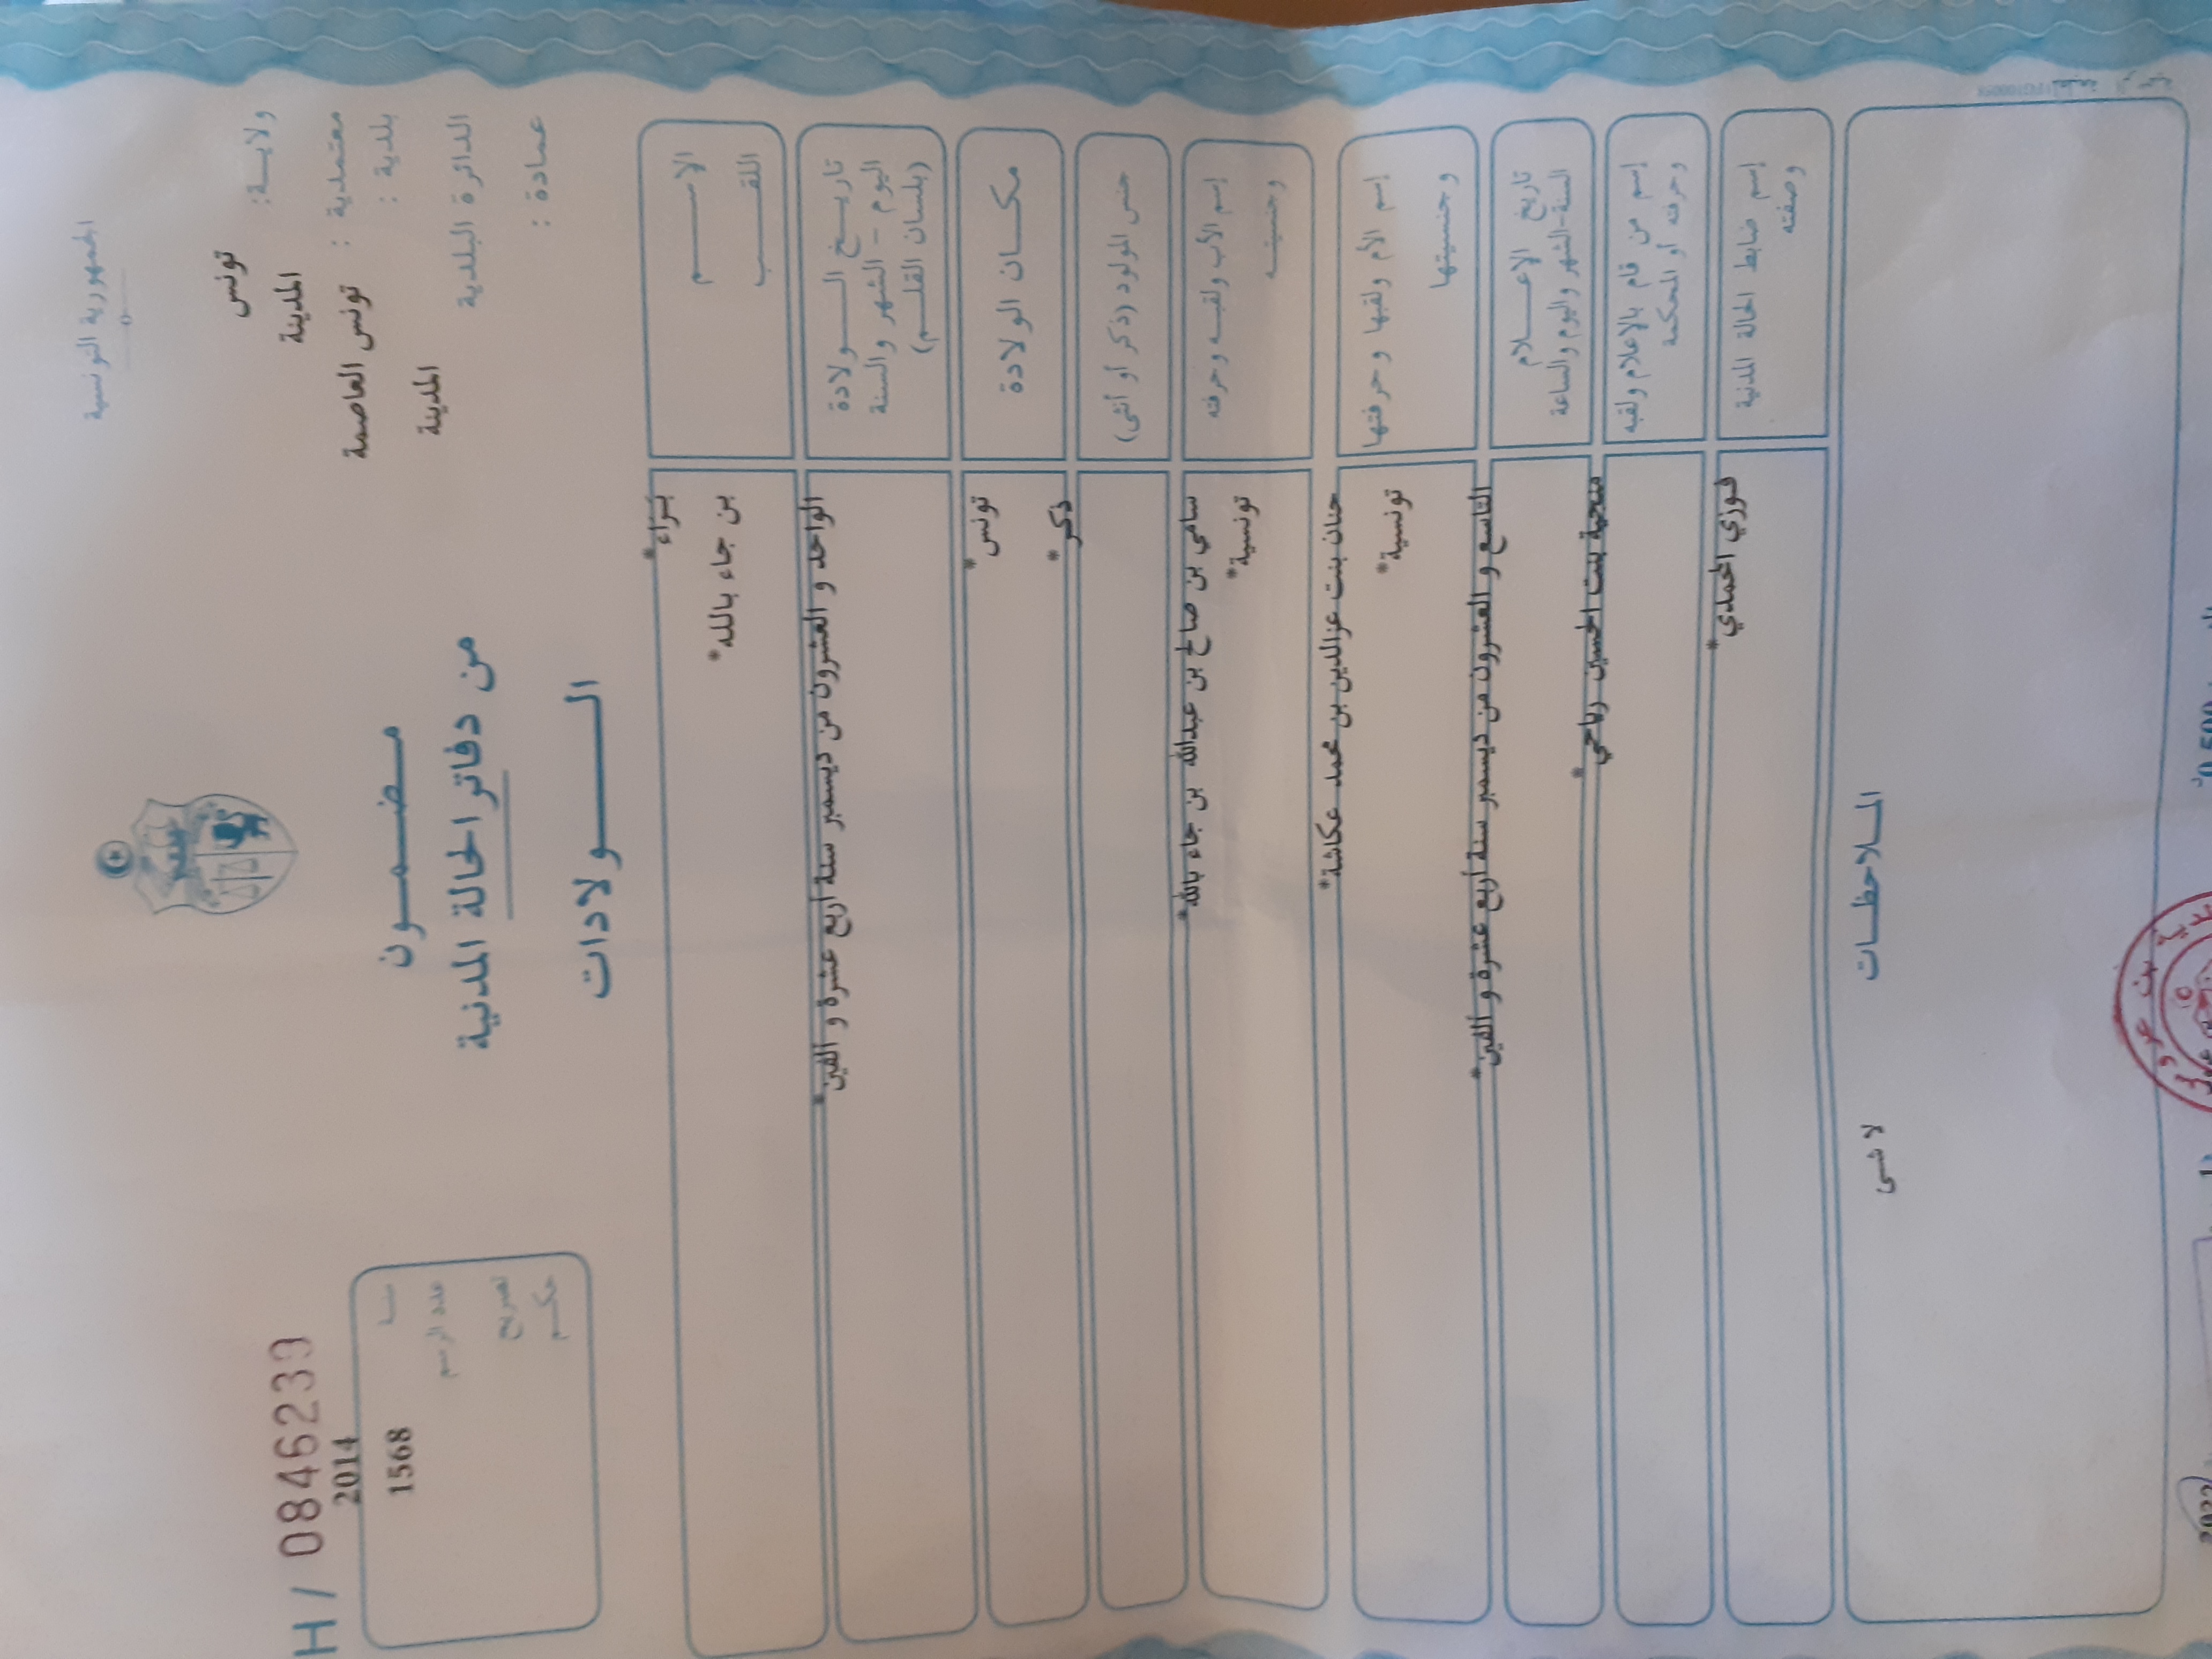 الجمهورية التونسية
ولايـــة: تونس
المدينة
معتمدية :
بلدية : تونس العاصمة
الدائرة البلدية
المدينة
عمادة :
مـضـمـــون
من دفاتر الحالة المدنية
الـــــولادات
H / 0846239
2014
1568
عدد الرسم
تصريح
حكـــم
الاســـــم
اللقـــــب
بن جاء بالله*
تاريـــخ الـــــولادة
اليوم - الشهر والسنة
(بلسان القلـــم)
الواحد و العشرون من ديسمبر سنة أربع عشرة و ألفين*
مكـــان الولادة
تونس*
جنس المولود (ذكر أو أنثى)
ذكر*
إسم الأب ولقبـــه وحرفته
وجنسيتـــه
سامي بن صالح بن عبدالله بن جاء بالله*
تونسية*
إسم الأم ولقبها وحرفتها
وجنسيتها
حنان بنت عزالدين بن محمد عكاشة*
تونسية*
تاريخ الاعـــــلام
السنة-الشهر واليوم والساعة
التاسع و العشرون من ديسمبر سنة أربع عشرة و ألفين*
إسم من قام بالاعلام ولقبه
وحرفته أو المحكمة
بنت الحسين رياحي*
إسم ضابط الحالة المدنية
وصفته
فوزي المحمدي*
المـــلاحظـــات
لا شى